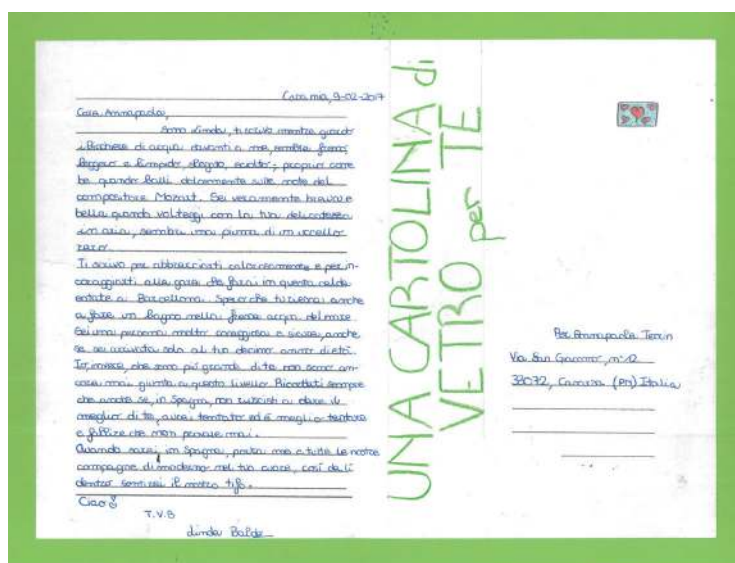 Casa mia, 9-02-2017
Cara Annapaola,
Sono Linda, ti scrivo mentre guardo
il Bicchiere di acqua davanti a me, sembra
leggero e limpido, slegato, sciolto; proprio come
te quando balli dolcemente sulle note del
compositore Mozart. Sei veramente brava e
bella quando volteggi con la tua delicatezza
in aria, sembri una piuma di un uccello
raro.
Ti scrivo per abbracciarti calorosamente e per in-
coraggiarti alla gara che farai in questa calda
estate a Barcellona. Spero che tu riesca anche
a fare un bagno nella fresca acqua del mare.
Sei una persona molto coraggiosa e sicura, anche
se sei arrivata solo al tuo decimo anno di età.
Io, invece, che sono più grande di te non sono an-
cora mai giunta a questo livello. Ricordati sempre
che anche se, in Spagna, non riuscirai a dare il
meglio di te, avrai tentato ed è meglio tentare
e fallire che non provare mai.
Quando sarai in Spagna, porta me e tutte le nostre
compagne di moderno nel tuo cuore, così da lì
dentro sentirai il nostro tifo.
Ciao
T.V.B
Linda Balde
UNA CARTOLINA di
VETRO per TE
Per Annapaola
Via San Giacomo, n°12
33072, Casarsa (PN) Italia